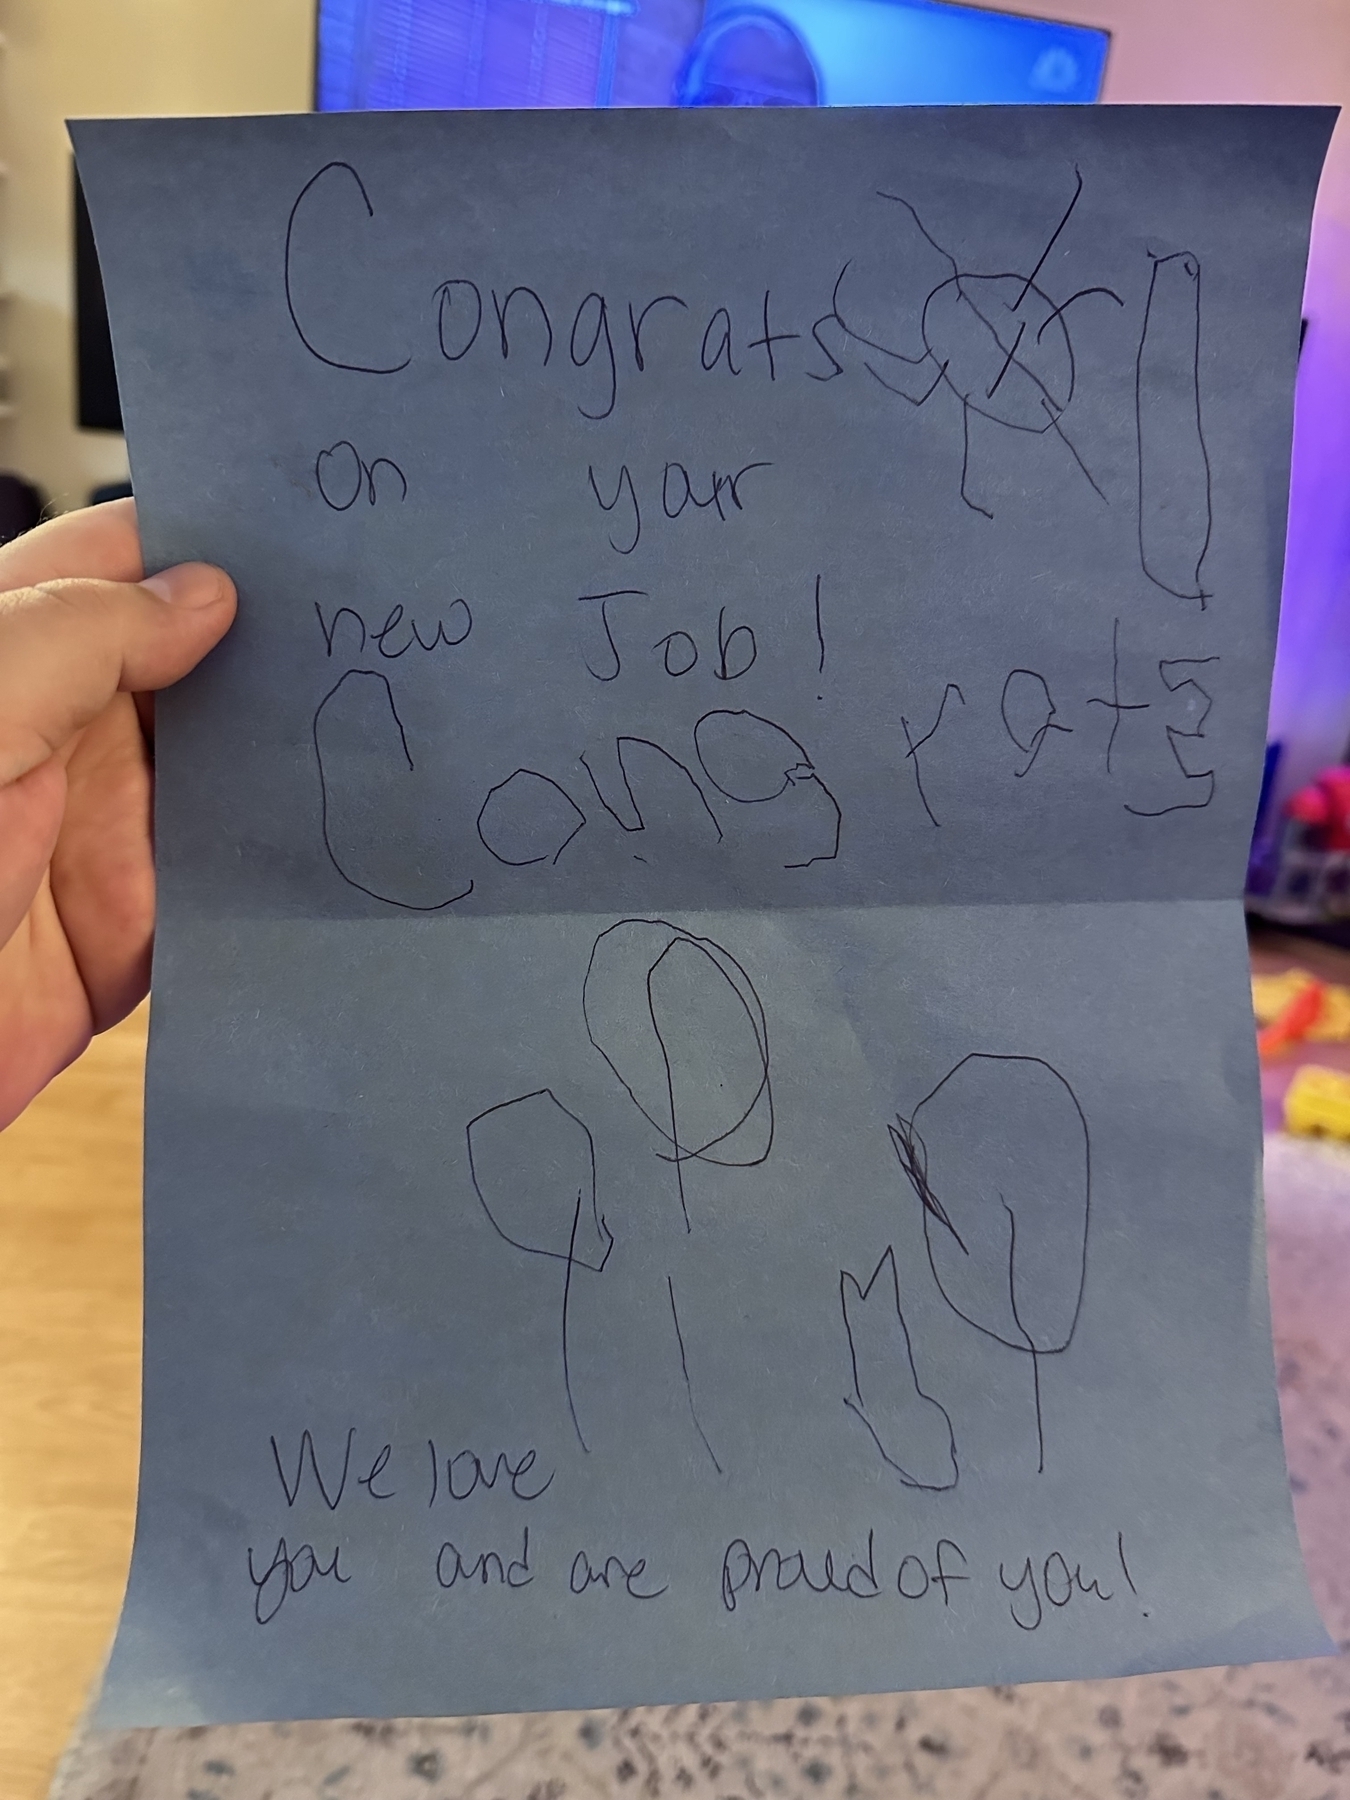 Congrats
on your
new Job!
Congrats
We love
you and are proud of you!